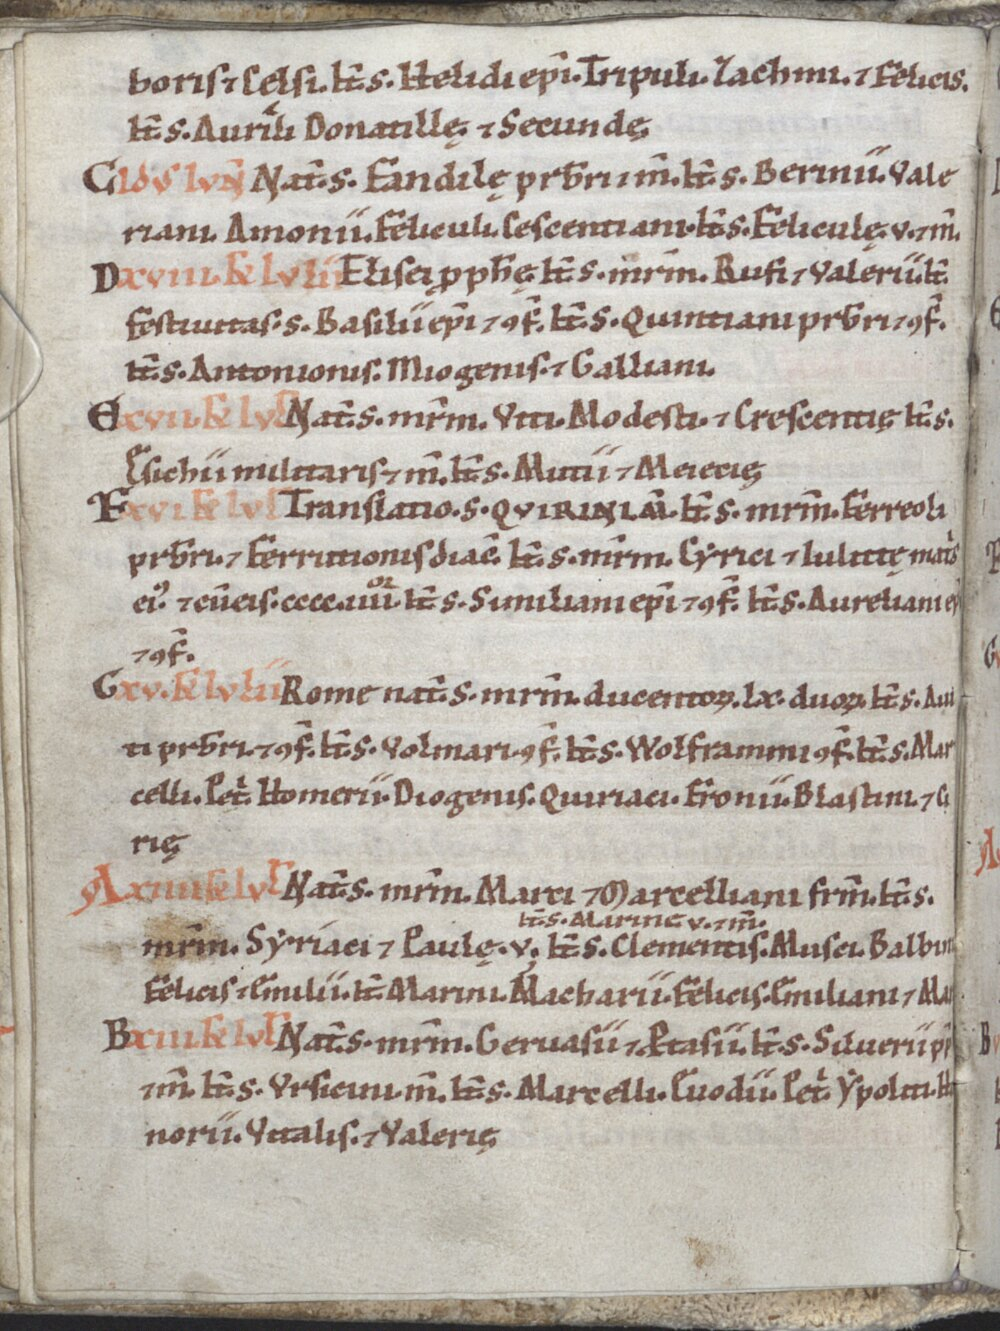 boris ⁊ Celsi. Itē.s. Helidi ep̄i. Tripuli. Zachini. ⁊ Felicis.
Itē.s. Aurīli Donatillę ⁊ Secundę
C Idꝰ Iuñ Nat̄.s. Fandilę pr̄bri ⁊ m̄. Itē.s. Berinii. Vale
riani Amonii. Feliculi Cescentiani. Itē.s. Feliculę. v. ⁊ m̄.
D xviii. kl̄ Iulii Elisei ꝓph̄ę Itē.s. mr̄m. Rufi ⁊ Valerii. Itē
festiuitas. s. Basilii ep̄i ⁊ ꝯf̄. Itē.s. Quintiani pr̄bri ⁊ ꝯf̄.
Itē.s. Antonionis. Miogenis. ⁊ Galliani.
E xvii. kl̄ Iul̄ Nat̄.s. mr̄m. Viti. Modesti. ⁊ Crescentię Itē.s.
Esichii militaris ⁊ m̄. Itē.s. Mutii ⁊ Meiecię
F xvi kl̄ Iul̄ Translatio. s. QVIRINI M̄. Itē.s. mr̄m. Ferreoli
pr̄bri. ⁊ Ferrutionis diac̄. Itē.s. mr̄m. Cyrici ⁊ Iulittę mat̄s
eiꝰ. ⁊ cū eis. cccc. iiii.or Itē.s. Similiani ep̄i ⁊ ꝯf̄. Itē.s. Aureliani ep̄
⁊ ꝯf̄.
G xv. kl̄ Iulii Rome nat̄.s. mr̄m. ducentoꝝ. lx. duoꝝ. Itē.s. Aui
ti pr̄bri. ⁊ ꝯf̄. Itē.s. Volmari. ꝯf̄. Itē.s. Wolframmi ꝯf̄. Itē.s. Mar
celli. Pet̄. Homerii. Diogenis. Quiriaci. Fronii. Blastini. ⁊ Ci
rię
A xiiii kl̄ Iul̄ Nat̄.s. mr̄m. Marci ⁊ Marcelliani frm̄. Itē.s.
Itē.s. Marinę v. ⁊ m̄.
mr̄m. Syriaci ⁊ Paulę. v. Itē.s. Clementis. Musei. Balbini
Felicis ⁊ Emilii. Itē Marini. Macharii. Felicis. Emiliani ⁊ Mar
B xiii. kl̄ Iul̄ Nat̄.s. mr̄m. Geruasii ⁊ Ptasii. Itē.s. Siluerii pp̄
⁊ m̄. Itē.s. Vrsicini m̄. Itē.s. Marcelli. Euodii. Pet̄. Ypoliti. Ho
norii. Vitalis. ⁊ Valerię